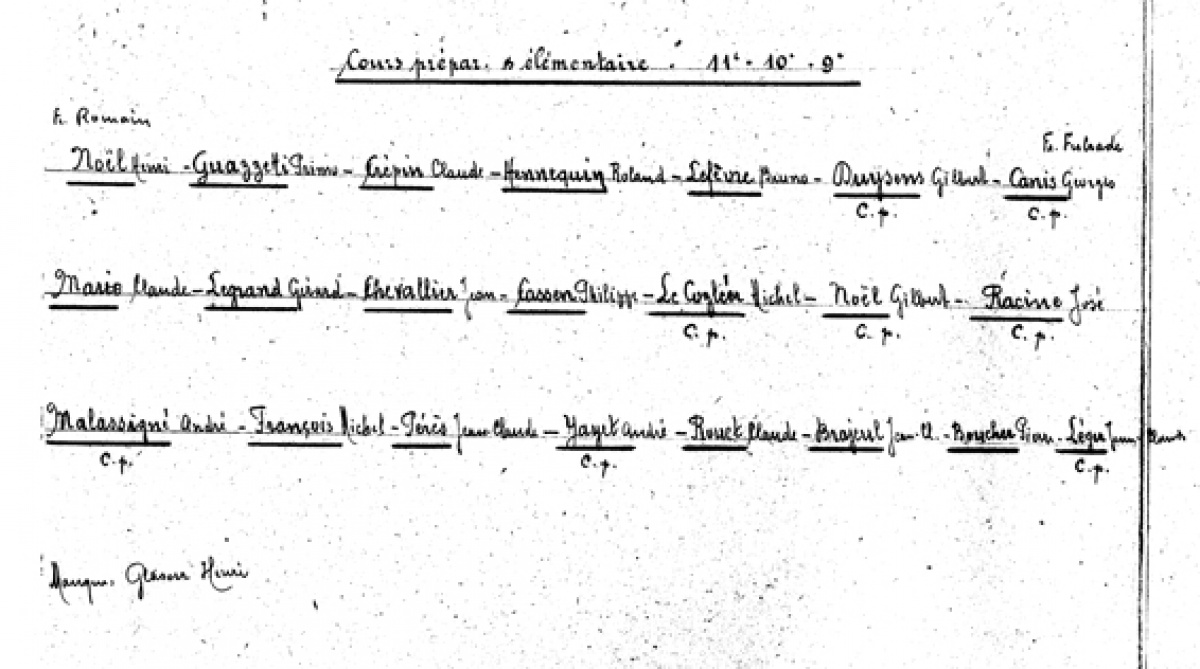 Cours prépar. & élémentaire. 11e - 10e - 9e
F. Romain
Fr. Fulrade
Noël Rémi - Guazzeti Primo - Crépin Claude - Hennequin Roland - Lefèvre Bruno - Duysens Gilbert - Canis Georges
C.p. C.p.
Mario Claude - Legrand Gérard - Chevallier Jean - Casson Philippe - Le Michel - Noël Gilbert - Racine José
C.p. C.p. C.p.
Malassigné André - François Michel - Pérès Jean Claude - Yayet André - Rouet Claude - Brajeul Jean-Cl. - Boucher - Léger Jean-
C.p. C.p. C.p.
Manque. Henri